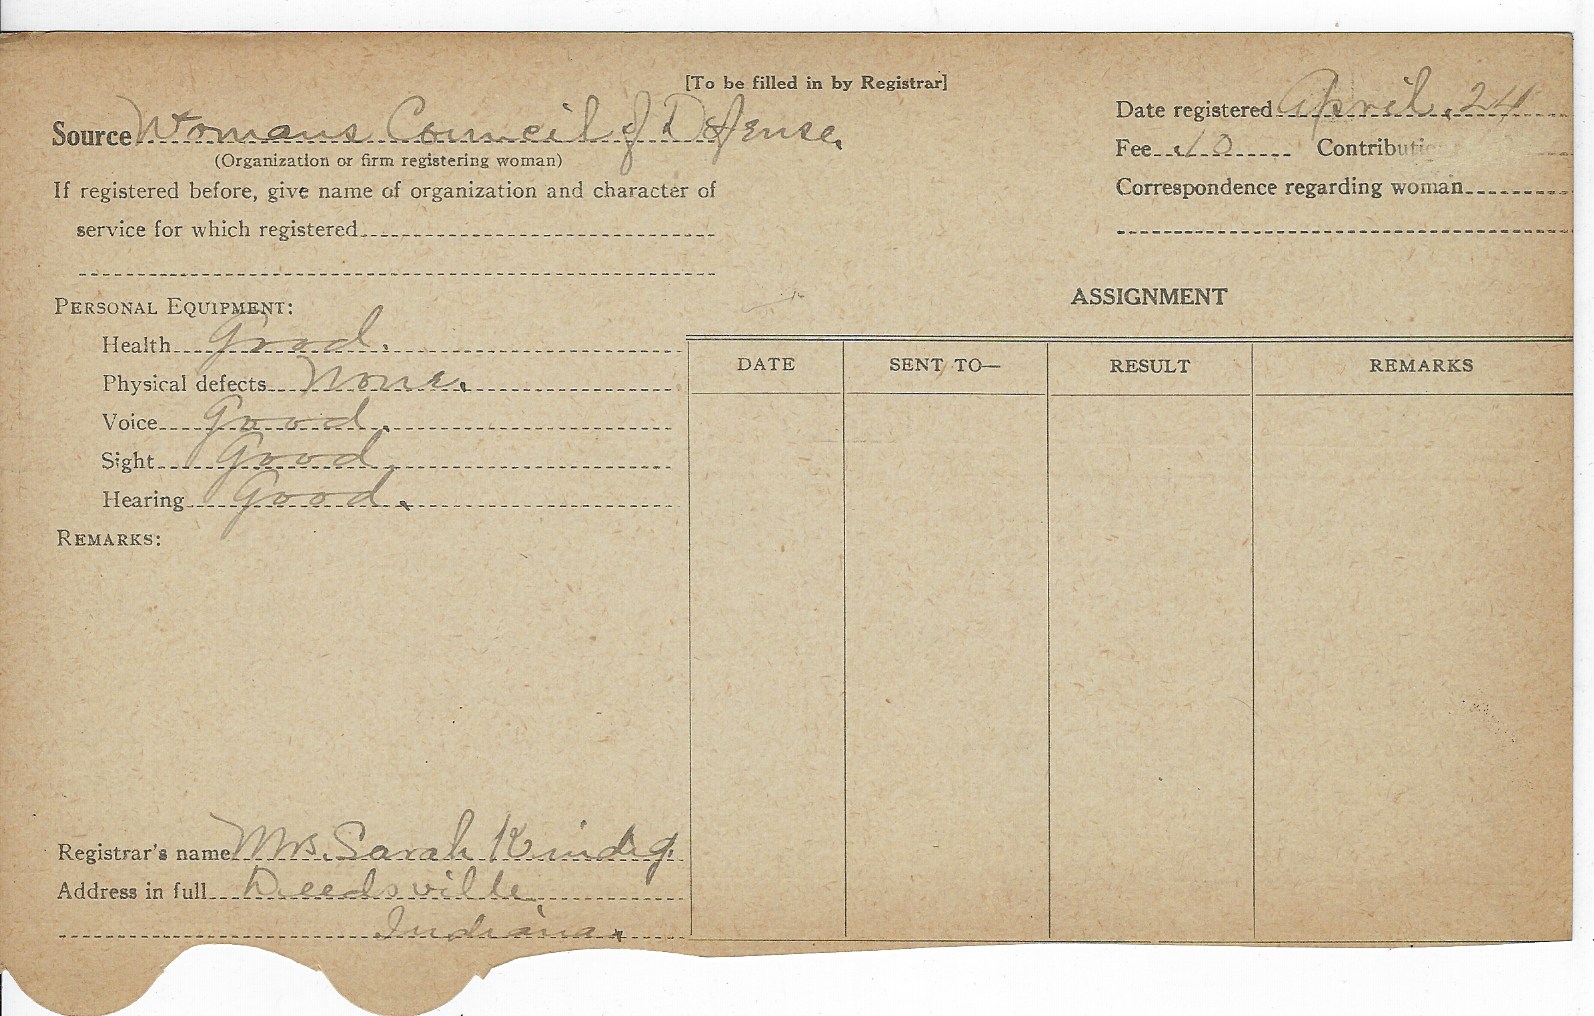 [To be filled in by Registrar]
Source Womans Council of Defense.
(Organization or firm registering woman)
If registered before, give name of organization and character of
service for which registered
Date registered April. 24
Fee .10 Contributi
Correspondence regarding woman
PERSONAL EQUIPMENT:
Health Good.
Physical defects None.
Voice Good.
Sight Good.
Hearing Good.
REMARKS:
ASSIGNMENT
DATE SENT TO— RESULT REMARKS
Registrar's name Mrs. Sarah Kindig.
Address in full Deedsville
Indiana.